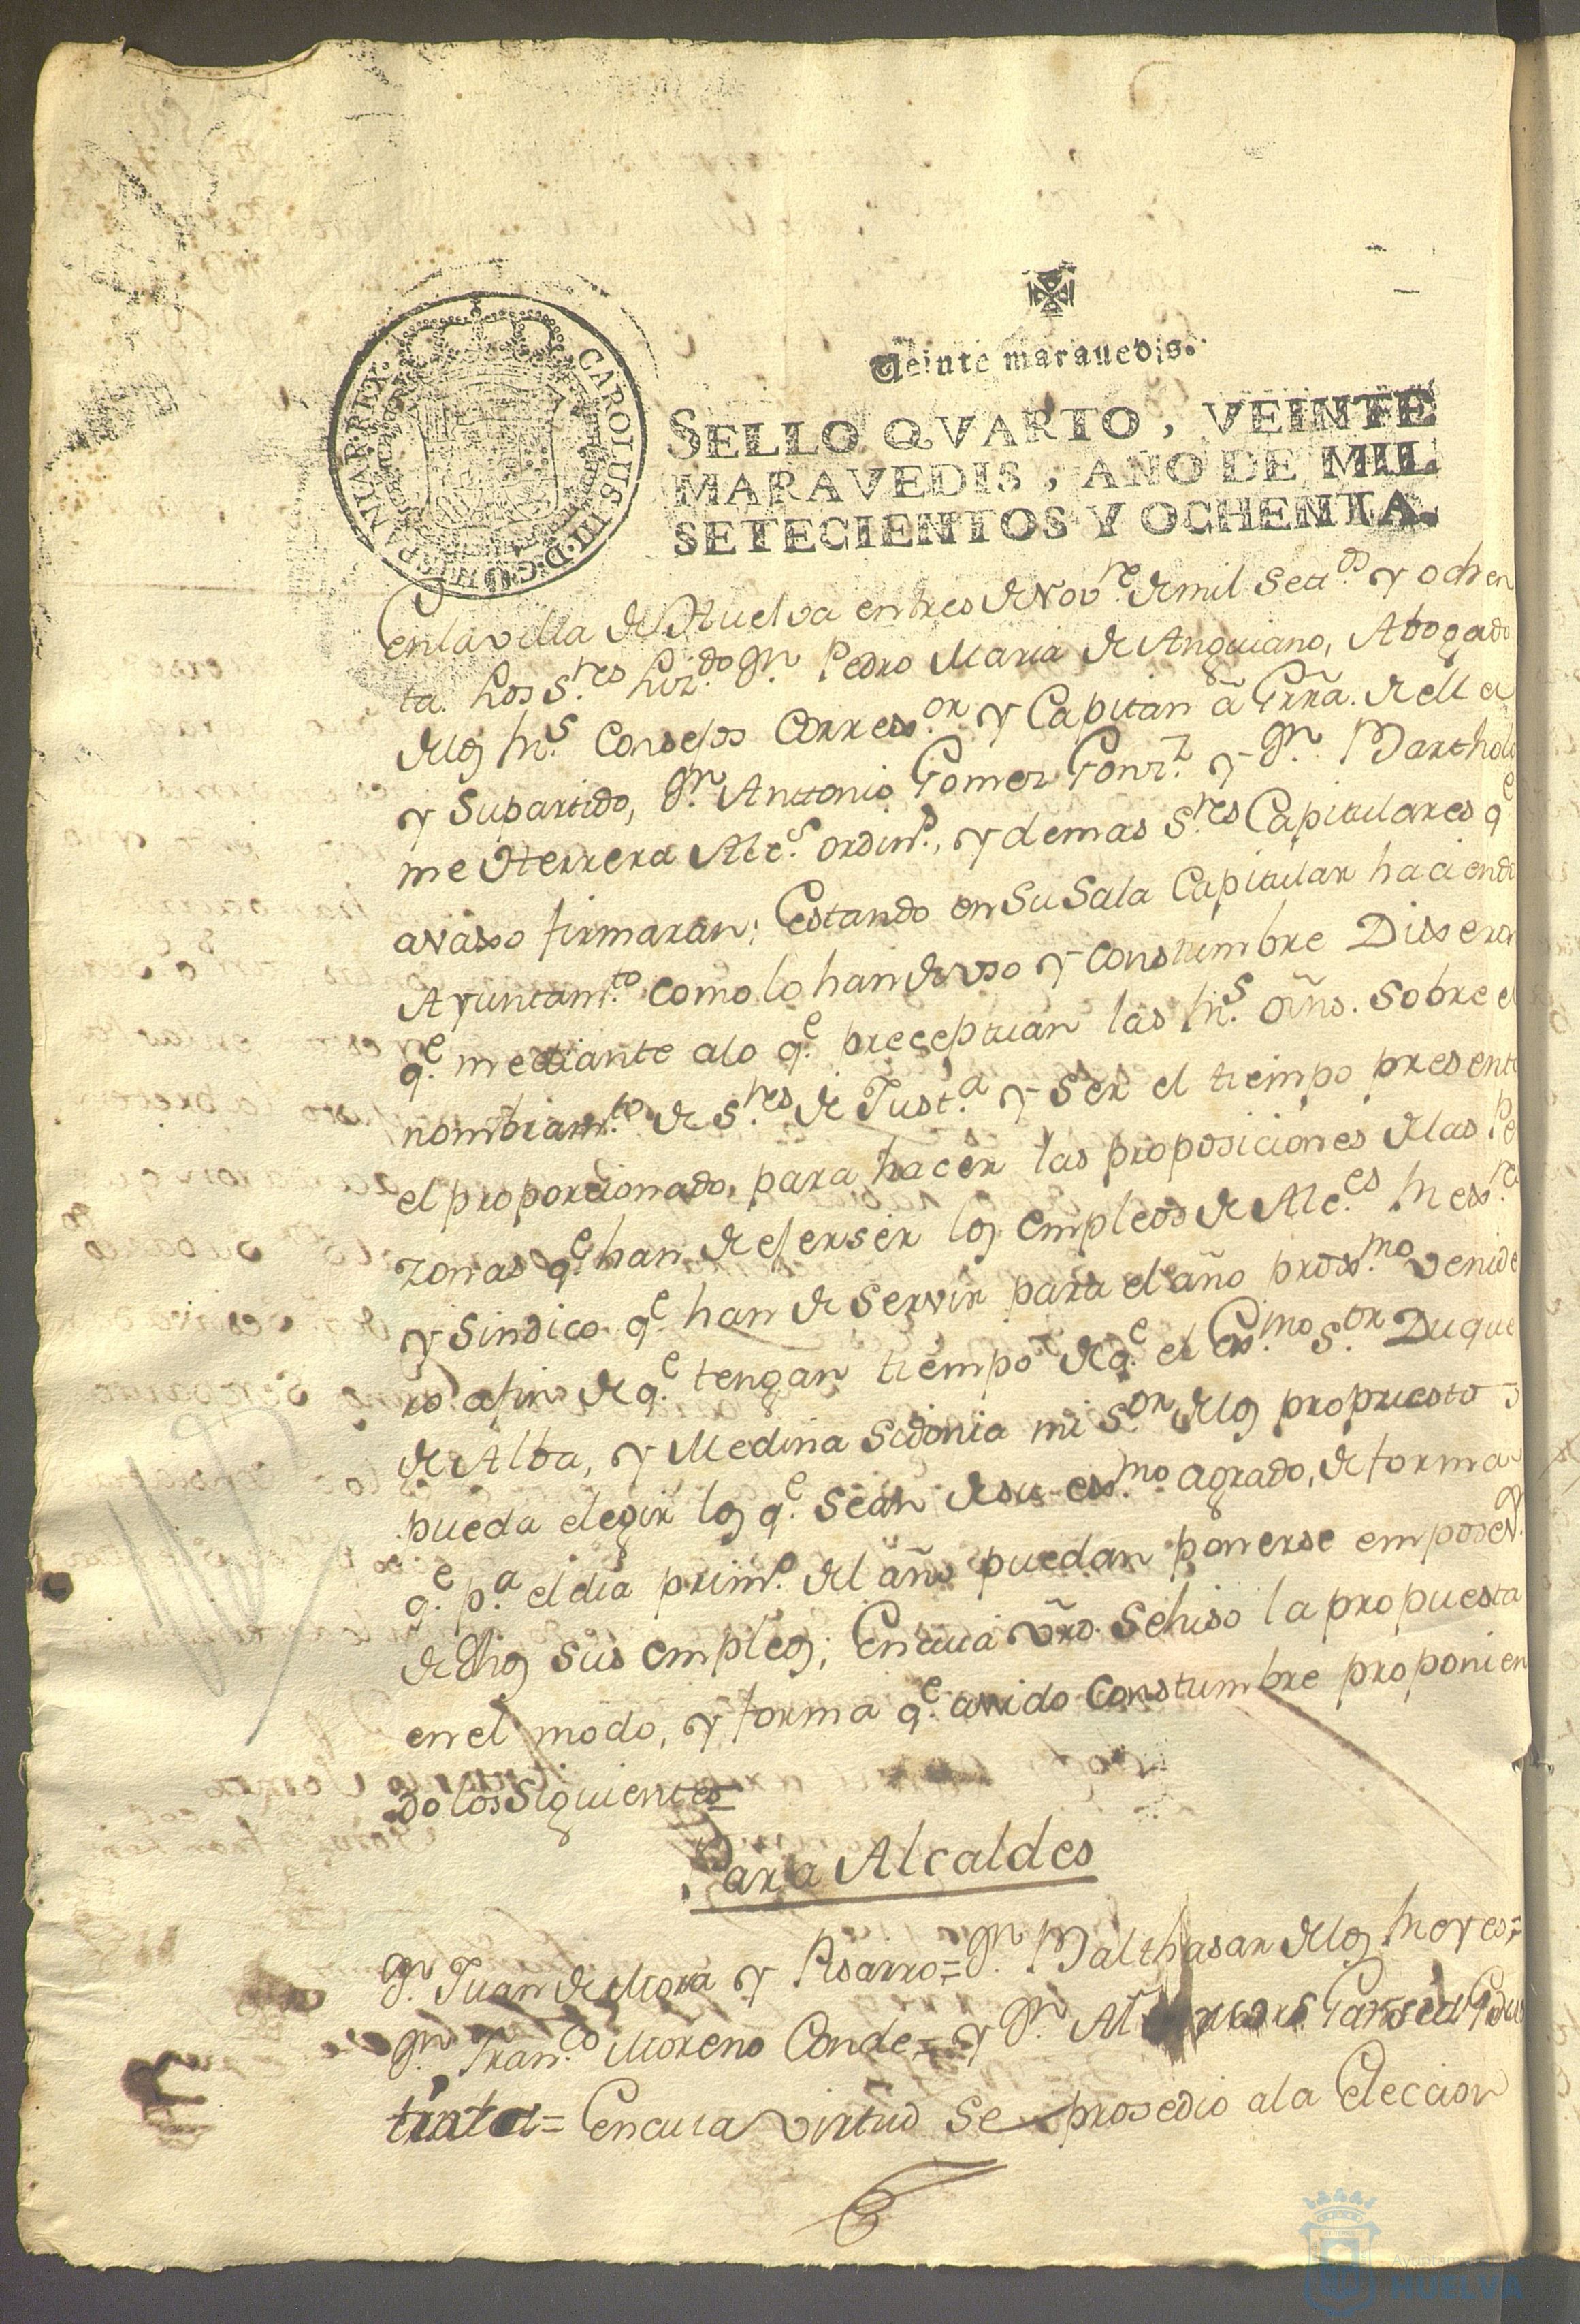 Veinte marauedis.
SELLO QVARTO, VEINTE
MARAVEDIS, AÑO DE MIL
SETECIENTOS Y OCHENTA.
CAROLUS·III·D·G·HISPANIAR·REX·
En la villa de Huelva en tres de Nov.re de mil Set.os y ochen
ta. Los S.res Liz.do Dn. Pedro Maria de Anguiano, Abogado
de los Rs. Consejos Correx.or y Capitan â Grrâ. de ella
y Supartido, Dn. Anttonio Gomez Gonz.z y Dn. Bartholo
me Herrera Alc.s ordin.s, y demas S.res Capitulares q.e
avaxo firmaran; Estando en Su Sala Capitular haciendo
Ayuntam.to como lo han de vso y Constumbre Dixeron
q.e mediante alo q.e preceptuan las Rs. Orñs. Sobre el
nombram.to de S.res de Just.a y Ser el tiempo presente
el proporcionado, para hacer las proposiciones de las Pe
zonas q.e han de exerser los empleos de Alc.es
y Sindico q.e han de Servir para el año prox.mo venide
ro afin de q.e tengan tiempo de q.e el Ex.mo S.or Duque
de Alba, y Medina Sidonia mi S.or de los propuestos
pueda elegir los q.e sean de su ex.mo agrado, de forma
q.e p.a el dia prim.o del año puedan ponerse en posen.
de dhos sus empleos; En cuia vrd. Sehiso la propuesta
en el modo, y forma q.e avido Constumbre proponien
do los Siguientes=
Para Alcaldes
Dn. Juan de Mora y Pisarro= Dn. Balthasar de los Reyes=
Dn. Fran.co Moreno Conde= y Dn. Garsea
= En cuia virtud Se prosedio ala Eleccion
Ayuntamiento
HUELVA